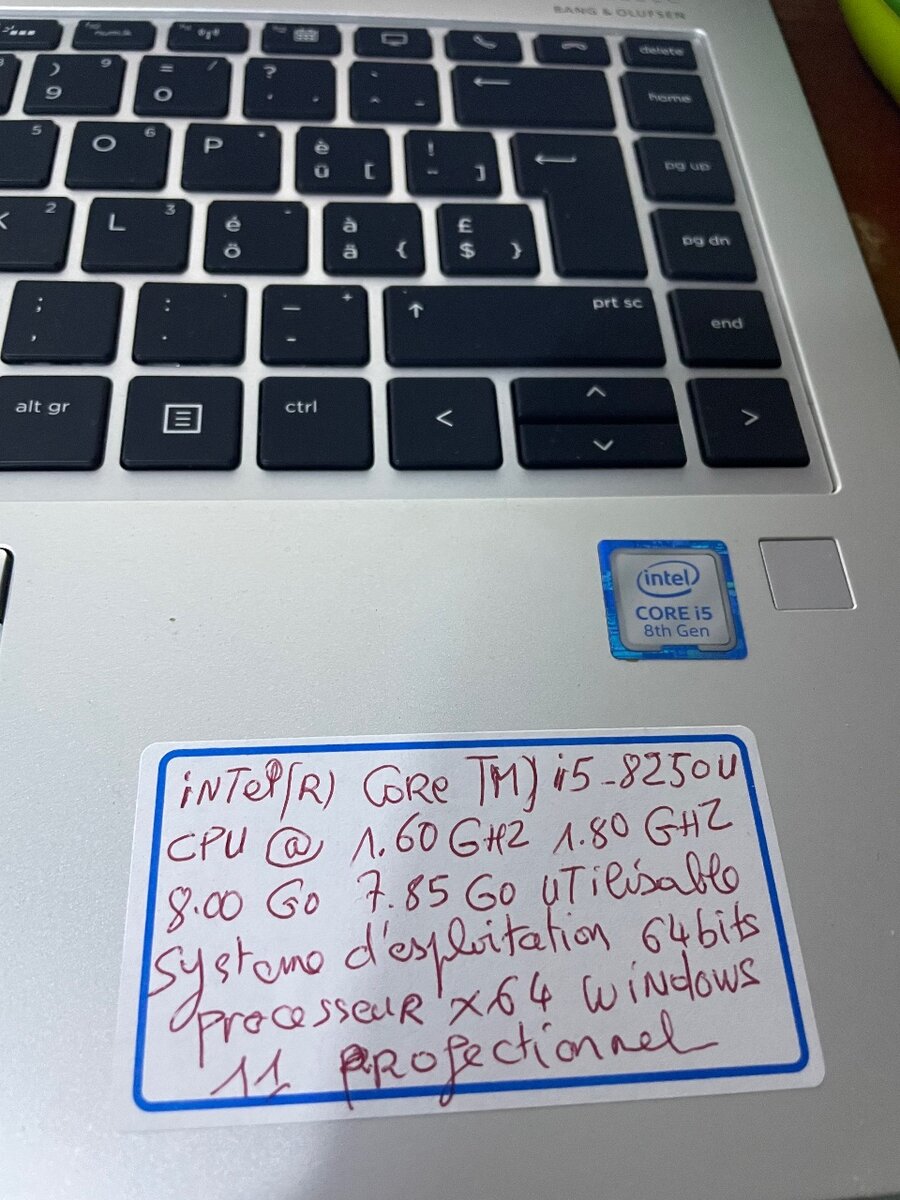 BANG & OLUFSEN
num lk
delete
) 9
9
= /
0
?
' ,
`
^ ~
home
5
O 6
P
è
ü [
!
¨ ]
pg up
K 2
L 3
é
ö
à
ä {
£
$ }
pg dn
;
,
:
.
_ +
-
↑ prt sc
end
alt gr
ctrl
<
^
v
>
intel
CORE i5
8th Gen
iNTel(R) CoRe TM) i5-8250U
CPU @ 1.60 GHZ 1.80 GHZ
8.00 Go 7.85 Go UTilisable
Systeme d'esploitation 64 bits
processeuR x64 WiNdows
11 pRofectionnel